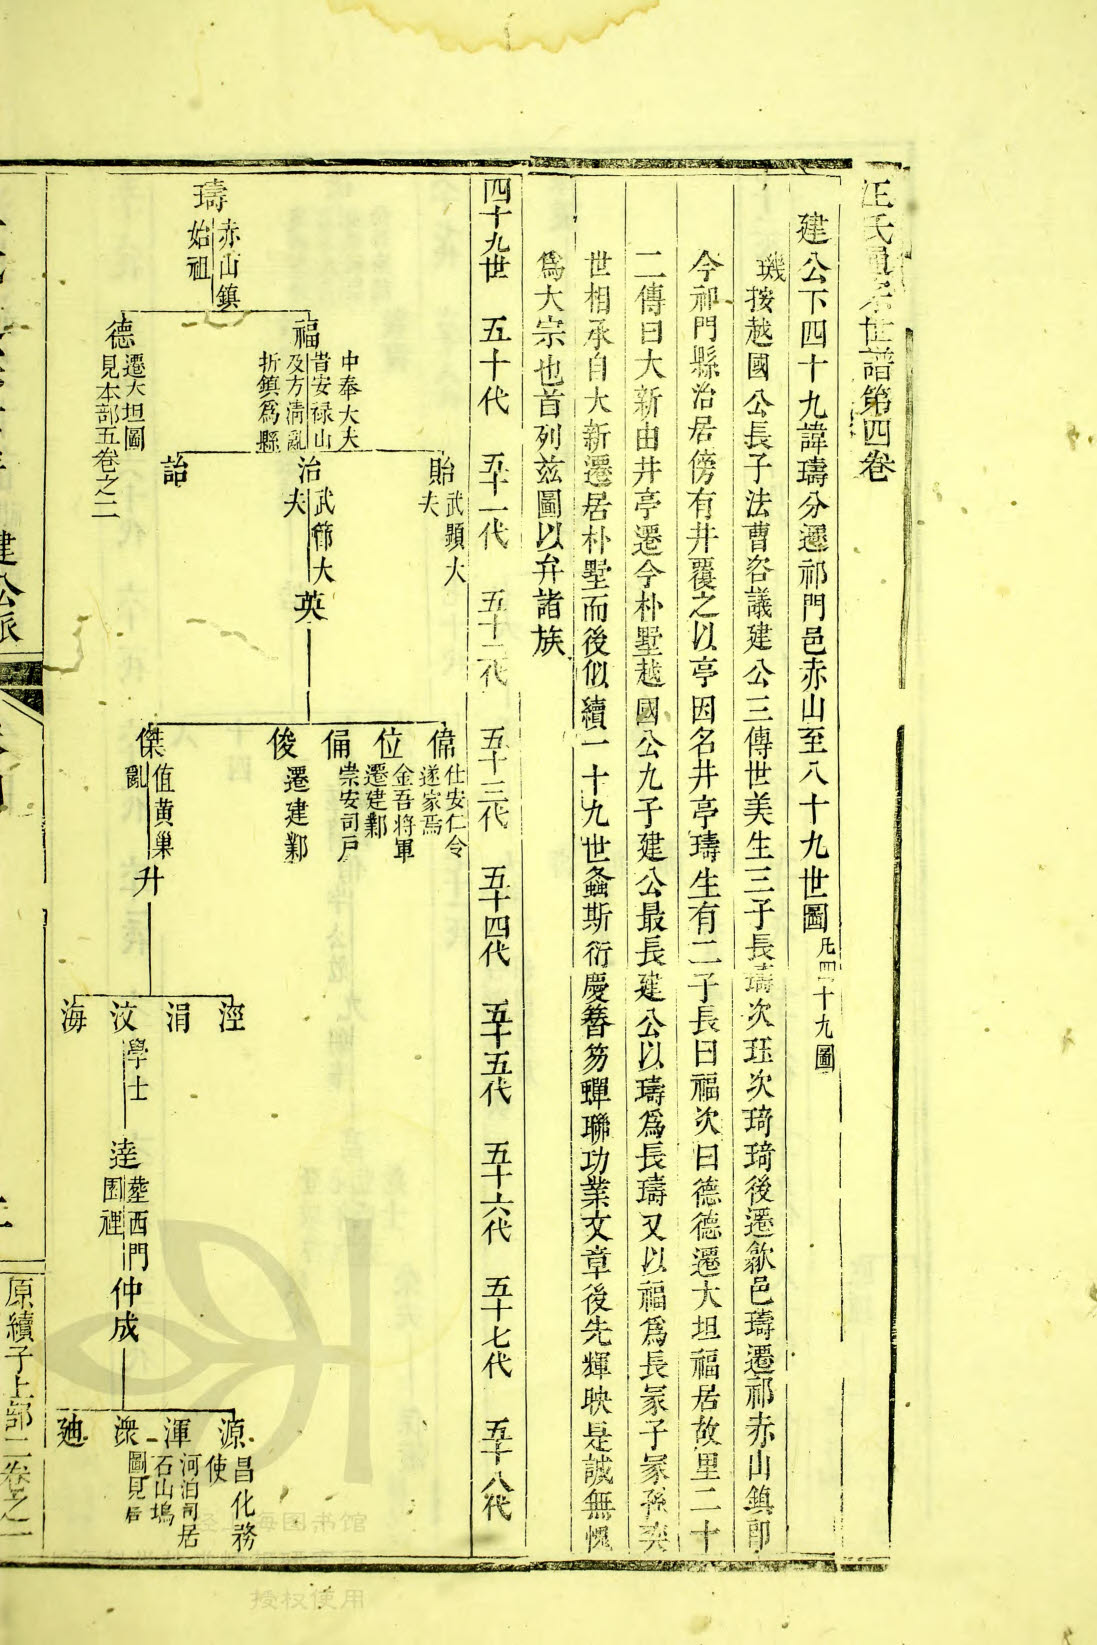 汪氏通宗世譜第四卷
建公下四十九諱璹分遷祁門邑赤山至八十九世圖凡四十九圖
璣按越國公長子法曹咨議建公三傳世美生三子長璹次珏次琦琦後遷歙邑璹遷祁赤山鎮即
今祁門縣治居傍有井覆之以亭因名井亭璹生有二子長曰福次曰德德遷大坦福居故里二十
二傳曰大新由井亭遷今朴墅越國公九子建公最長建公以璹為長璹又以福為長冢子冢孫奕
世相承自大新遷居朴墅而後似續一十九世螽斯衍慶簪笏蟬聯功業文章後先輝映是誠無愧
為大宗也首列茲圖以弁諸族
四十九世 五十代 五十一代 五十二代 五十三代 五十四代 五十五代 五十六代 五十七代 五十八代
璹 赤山鎮始祖
福 中奉大夫昔安禄山及方清亂折鎮為縣
德 遷大坦圖見本部五卷之二
貽 武顯大夫
治 武節大夫
詒
英
偉 仕安仁令遂家焉
位 金吾將軍遷建鄴
俑 崇安司戶
俊 遷建鄴
傑 值黃巢亂
升
涇
涓
汶 學士
海
逵 葬西門園裡
仲成
源 昌化務使
渾 河泊司居石山塢
濴 圖見后
廸
建公派
原續子上部二卷之一
经上海图书馆
授权使用